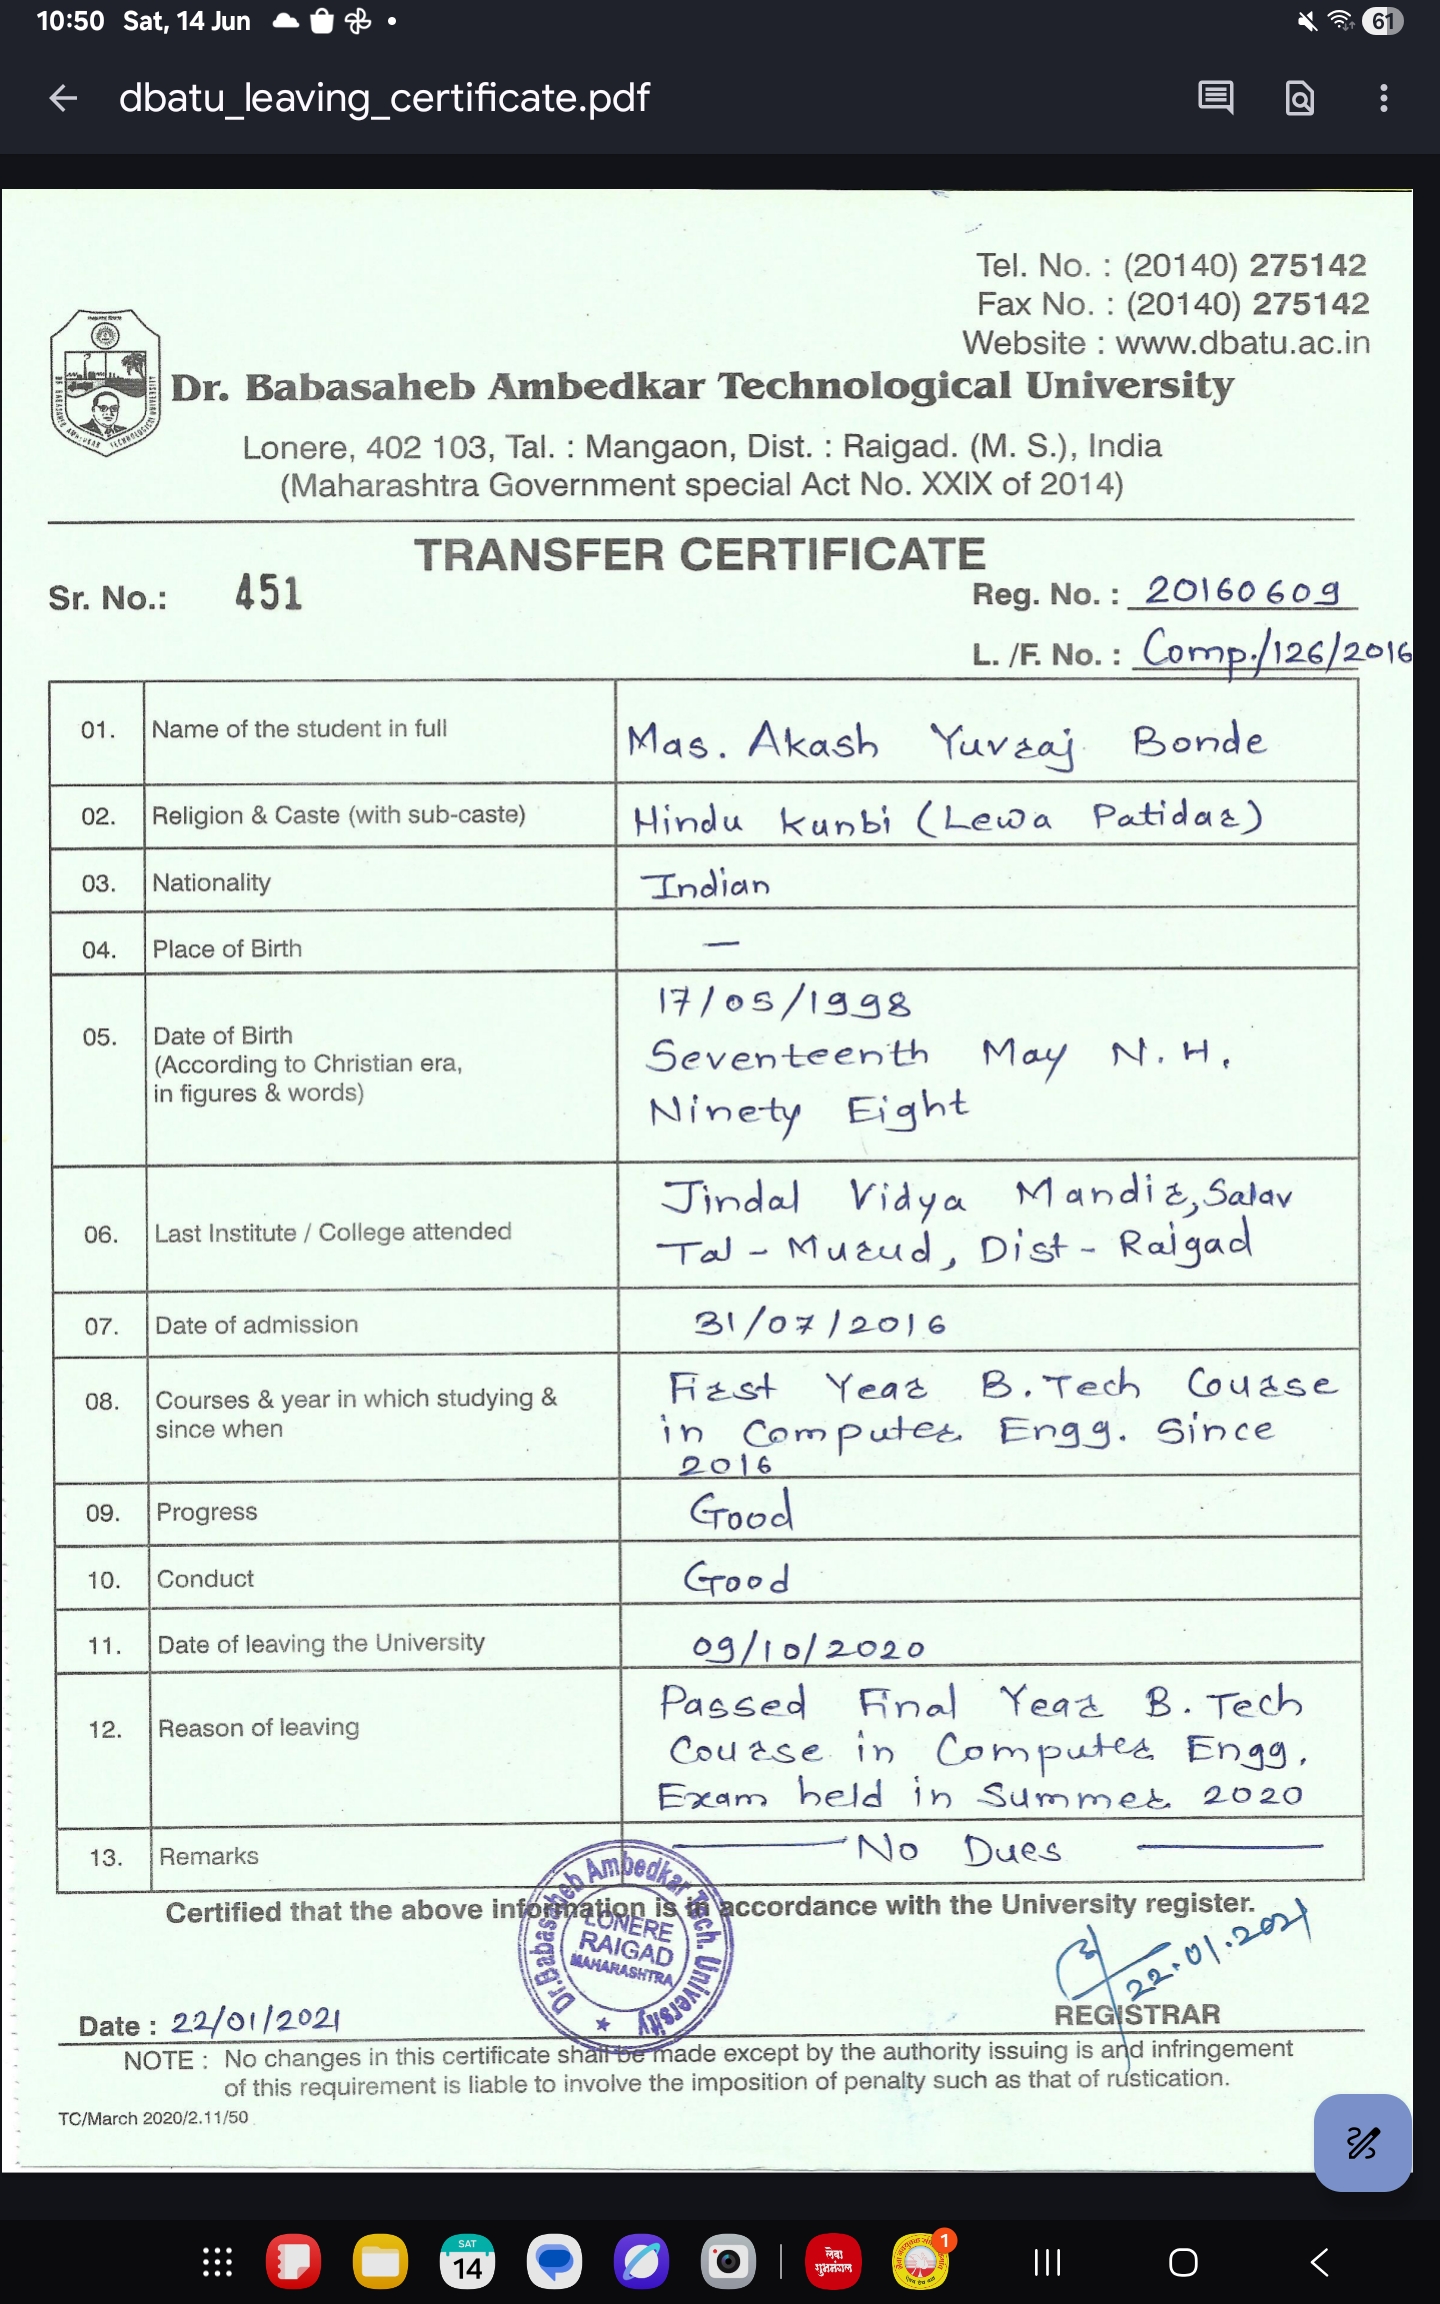 10:50 Sat, 14 Jun
61
dbatu_leaving_certificate.pdf
Tel. No. : (20140) 275142
Fax No. : (20140) 275142
Website : www.dbatu.ac.in
Dr. Babasaheb Ambedkar Technological University
Lonere, 402 103, Tal. : Mangaon, Dist. : Raigad. (M. S.), India
(Maharashtra Government special Act No. XXIX of 2014)
TRANSFER CERTIFICATE
Sr. No.: 451
Reg. No. : 20160609
L. /F. No. : Comp./126/2016
01. Name of the student in full Mas. Akash Yuvraj Bonde
02. Religion & Caste (with sub-caste) Hindu Kunbi (Lewa Patidar)
03. Nationality Indian
04. Place of Birth —
05. Date of Birth
(According to Christian era,
in figures & words)
17/05/1998
Seventeenth May N.H.
Ninety Eight
06. Last Institute / College attended
Jindal Vidya Mandir, Salav
Tal - Murud, Dist - Raigad
07. Date of admission 31/07/2016
08. Courses & year in which studying &
since when
First Year B.Tech Course
in Computer Engg. Since
2016
09. Progress Good
10. Conduct Good
11. Date of leaving the University 09/10/2020
12. Reason of leaving
Passed Final Year B.Tech
Course in Computer Engg.
Exam held in Summer 2020
13. Remarks — No Dues —
Certified that the above information is in accordance with the University register.
Dr.Babasaheb Ambedkar Tech. University
LONERE
RAIGAD
MAHARASHTRA
22.01.2021
REGISTRAR
Date : 22/01/2021
NOTE : No changes in this certificate shall be made except by the authority issuing is and infringement
of this requirement is liable to involve the imposition of penalty such as that of rustication.
TC/March 2020/2.11/50
SAT
14
लेवा
1